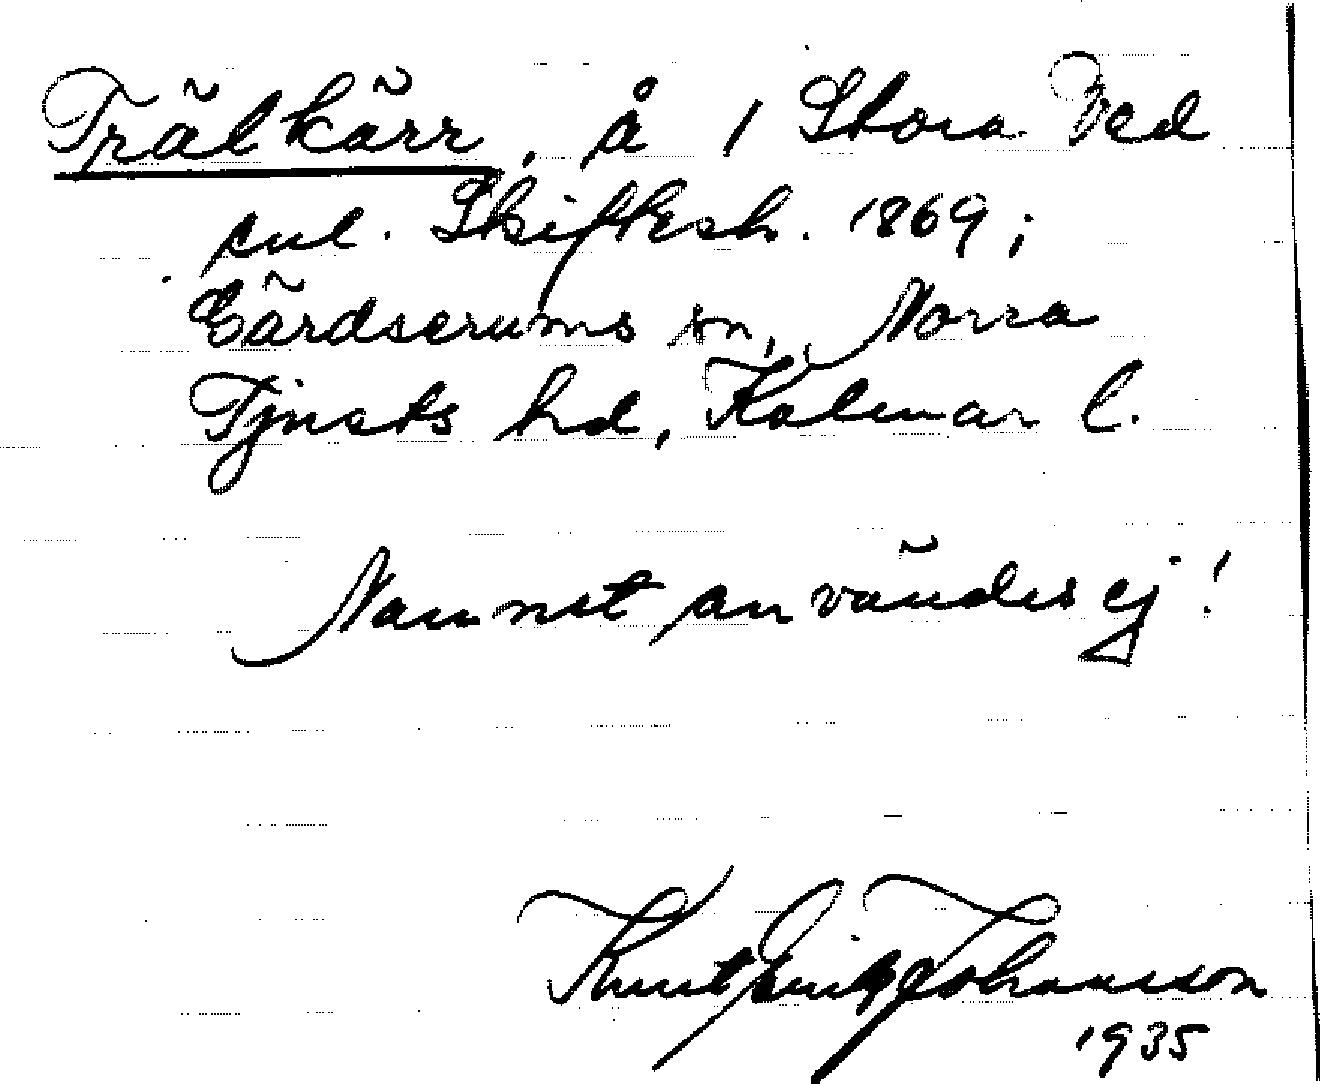 Trälkärr, å 1 Stora Ved
enl. Skiftesh. 1869;
Gärdserums sn, Norra
Tjusts hd, Kalmar l.
Namnet användes ej!
Knut Erik Johansson
1935